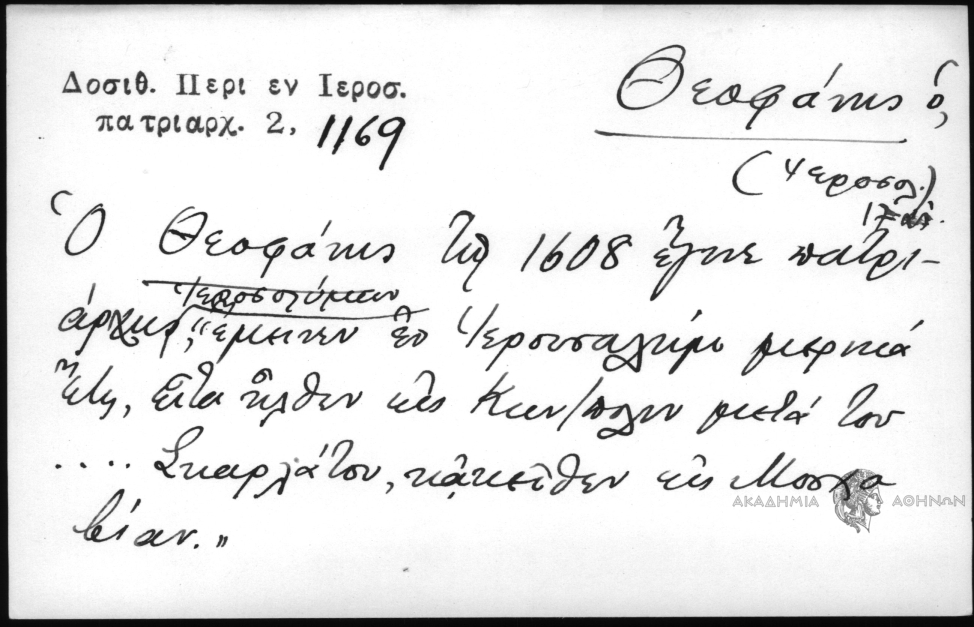 Δοσιθ. Περι εν Ιεροσ.
πατριαρχ. 2, 1169
Θεοφάνης ὁ,
(Ἱεροσολ.)
Ὁ Θεοφάνης τῷ 1608 ἔγινε πατρι-
Ἱεροσολύμων
άρχης, "ἔμεινεν ἐν Ἱερουσαλήμ μερικά
ἔτη, εἶτα ἦλθεν εἰς Κων/πολιν μετά του
.... Σκαρλάτου, κἀκεῖθεν εἰς Μοσχο
βίαν."
ΑΚΑΔΗΜΙΑ ΑΘΗΝΩΝ